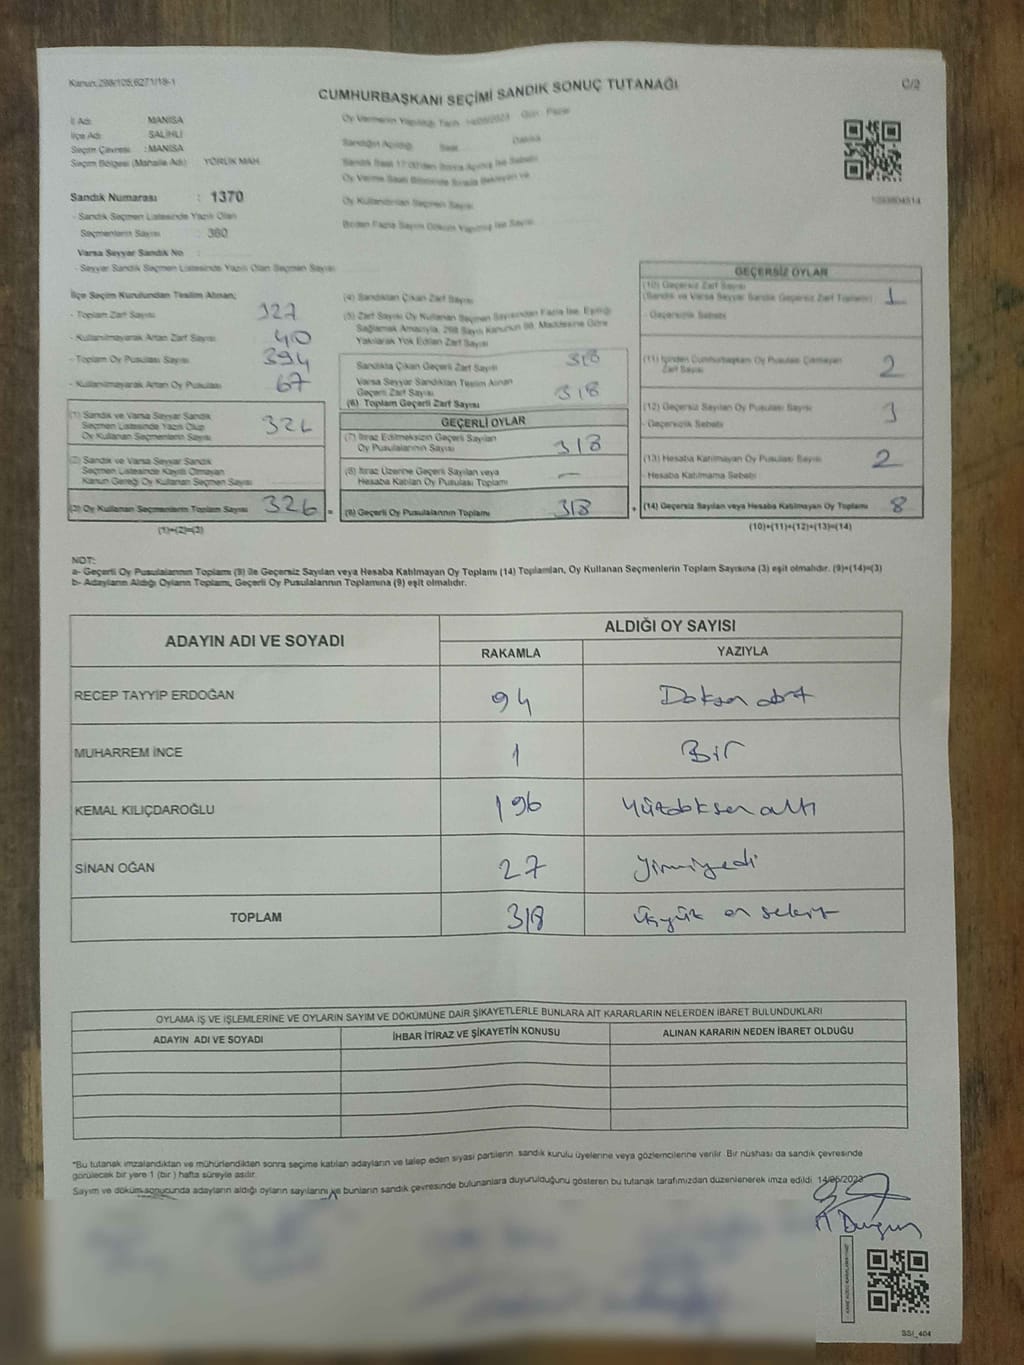 Kanun:298/105,6271/18-1
C/2
CUMHURBAŞKANI SEÇİMİ SANDIK SONUÇ TUTANAĞI
İl Adı MANİSA
İlçe Adı SALİHLİ
Seçim Çevresi : MANİSA
Seçim Bölgesi (Mahalle Adı) YÖRÜK MAH.
Sandık Numarası : 1370
- Sandık Seçmen Listesinde Yazılı Olan
Seçmenlerin Sayısı : 380
Varsa Seyyar Sandık No :
- Seyyar Sandık Seçmen Listesinde Yazılı Olan Seçmen Sayısı
Oy Vermenin Yapıldığı Tarih 14/05/2023 Gün: Pazar
Sandığın Açıldığı Saat Dakika
Oy Kullandırılan Seçmen Sayısı
Birden Fazla Sayım Döküm Yapılmış İse Sayısı
İlçe Seçim Kurulundan Teslim Alınan;
- Toplam Zarf Sayısı 327
- Kullanılmayarak Artan Zarf Sayısı 40
- Toplam Oy Pusulası Sayısı 394
- Kullanılmayarak Artan Oy Pusulası 67
(1) Sandık ve Varsa Seyyar Sandık
Seçmen Listesinde Yazılı Olup
Oy Kullanan Seçmenlerin Sayısı 326
(2) Sandık ve Varsa Seyyar Sandık
Seçmen Listesinde Kayıtlı Olmayan
Kanun Gereği Oy Kullanan Seçmen Sayısı
(3) Oy Kullanan Seçmenlerin Toplam Sayısı 326 =
(1)+(2)=(3)
(4) Sandıktan Çıkan Zarf Sayısı
(5) Zarf Sayısı Oy Kullanan Seçmen Sayısından Fazla İse, Eşitliği
Sağlamak Amacıyla, 298 Sayılı Kanunun 98. Maddesine Göre
Yakılarak Yok Edilen Zarf Sayısı
Sandıkta Çıkan Geçerli Zarf Sayısı 318
Varsa Seyyar Sandıktan Teslim Alınan
Geçerli Zarf Sayısı 318
(6) Toplam Geçerli Zarf Sayısı
GEÇERLİ OYLAR
(7) İtiraz Edilmeksizin Geçerli Sayılan
Oy Pusulalarının Sayısı 318
(8) İtiraz Üzerine Geçerli Sayılan veya
Hesaba Katılan Oy Pusulası Toplamı —
(9) Geçerli Oy Pusulalarının Toplamı 318 +
GEÇERSİZ OYLAR
(10) Geçersiz Zarf Sayısı
(Sandık ve Varsa Seyyar Sandık Geçersiz Zarf Toplamı) 1
- Geçersizlik Sebebi
(11) İçinden Cumhurbaşkanı Oy Pusulası Çıkmayan
Zarf Sayısı 2
(12) Geçersiz Sayılan Oy Pusulası Sayısı 3
- Geçersizlik Sebebi
(13) Hesaba Katılmayan Oy Pusulası Sayısı 2
- Hesaba Katılmama Sebebi
(14) Geçersiz Sayılan veya Hesaba Katılmayan Oy Toplamı 8
(10)+(11)+(12)+(13)=(14)
NOT:
a- Geçerli Oy Pusulalarının Toplamı (9) ile Geçersiz Sayılan veya Hesaba Katılmayan Oy Toplamı (14) Toplamları, Oy Kullanan Seçmenlerin Toplam Sayısına (3) eşit olmalıdır. (9)+(14)=(3)
b- Adayların Aldığı Oyların Toplamı, Geçerli Oy Pusulalarının Toplamına (9) eşit olmalıdır.
ADAYIN ADI VE SOYADI
ALDIĞI OY SAYISI
RAKAMLA YAZIYLA
RECEP TAYYİP ERDOĞAN 94 Doksan dört
MUHARREM İNCE 1 Bir
KEMAL KILIÇDAROĞLU 196 Yüzdoksanaltı
SİNAN OĞAN 27 Yirmiyedi
TOPLAM 318 üçyüz on sekiz
OYLAMA İŞ VE İŞLEMLERİNE VE OYLARIN SAYIM VE DÖKÜMÜNE DAİR ŞİKAYETLERLE BUNLARA AİT KARARLARIN NELERDEN İBARET BULUNDUKLARI
ADAYIN ADI VE SOYADI İHBAR İTİRAZ VE ŞİKAYETİN KONUSU ALINAN KARARIN NEDEN İBARET OLDUĞU
*Bu tutanak imzalandıktan ve mühürlendikten sonra seçime katılan adayların ve talep eden siyasi partilerin, sandık kurulu üyelerine veya gözlemcilerine verilir. Bir nüshası da sandık çevresinde
görülecek bir yere 1 (bir) hafta süreyle asılır.
Sayım ve döküm sonucunda adayların aldığı oyların sayılarını ve bunların sandık çevresinde bulunanlara duyurulduğunu gösteren bu tutanak tarafımızdan düzenlenerek imza edildi. 14/05/2023
SSİ_404